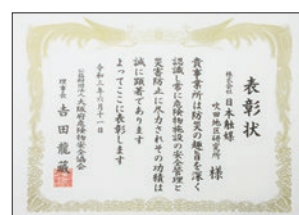 表彰状
株式会社 日本触媒
吹田地区研究所 様
貴事業所は防災の趣旨を深く
認識し常に危険物施設の安全管理と
災害防止に尽力されその功績は
誠に顕著であります
よってここに表彰します
令和三年六月十一日
公益財団法人大阪府危険物安全協会
理事長 吉田龍蔵